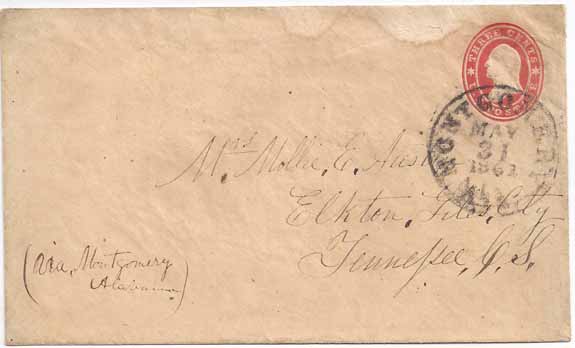 THREE CENTS
MONTGOMERY
MAY
31
1861
Mrs Mollie, E, Aust
Elkton, Giles, Cty
Tennessee, C. S.
(via, Montgomery
Alabama)